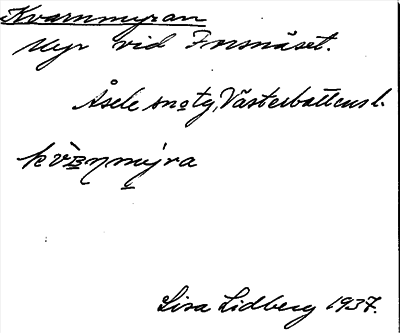 Kvarnmyran
Myr vid Forsnäset.
Åsele sn o tg, Västerbottens l.
Lisa Lidberg 1937.